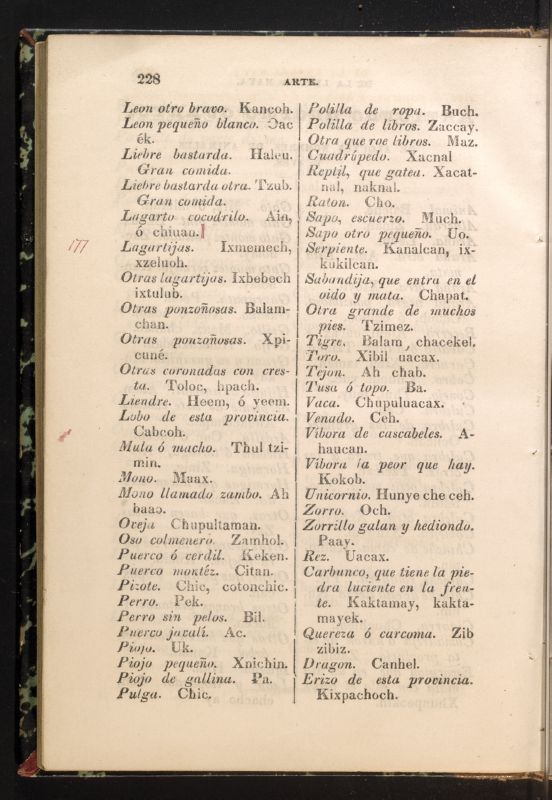 228
ARTE.
Leon otro bravo. Kancoh.
Leon pequeño blanco. Cac
ék.
Liebre bastarda. Haleu.
Gran comida.
Liebre bastarda otra. Tzub.
Gran comida.
Lagarto cocodrilo. Ain,
ó chiuan.
177
Lagartijas. Ixmemech,
xzeluoh.
Otras lagartijas. Ixbebech
ixtulub.
Otras ponzoñosas. Balam-
chan.
Otras ponzoñosas. Xpi-
cuné.
Otras coronadas con cres-
ta. Toloc, hpach.
Liendre. Heem, ó yeem.
Lobo de esta provincia.
Cabcoh.
Mula ó macho. Thul tzi-
min.
Mono. Maax.
Mono llamado zambo. Ah
baao.
Oveja Chupultaman.
Oso colmenero. Zamhol.
Puerco ó cerdil. Keken.
Puerco montéz. Citan.
Pizote. Chic, cotonchic.
Perro. Pek.
Perro sin pelos. Bil.
Puerco javalí. Ac.
Piojo. Uk.
Piojo pequeño. Xnichin.
Piojo de gallina. Pa.
Pulga. Chic.
Polilla de ropa. Buch.
Polilla de libros. Zaccay.
Otra que roe libros. Maz.
Cuadrúpedo. Xacnal
Reptil, que gatea. Xacat-
nal, naknal.
Raton. Cho.
Sapo, escuerzo. Much.
Sapo otro pequeño. Uo.
Serpiente. Kanalcan, ix-
kukilcan.
Sabandija, que entra en el
oido y mata. Chapat.
Otra grande de muchos
pies. Tzimez.
Tigre. Balam, chacekel.
Toro. Xibil uacax.
Tejon. Ah chab.
Tusa ó topo. Ba.
Vaca. Chupuluacax.
Venado. Ceh.
Víbora de cascabeles. A-
haucan.
Víbora la peor que hay.
Kokob.
Unicornio. Hunye che ceh.
Zorro. Och.
Zorrillo galan y hediondo.
Paay.
Rez. Uacax.
Carbunco, que tiene la pie-
dra luciente en la fren-
te. Kaktamay, kakta-
mayek.
Quereza ó carcoma. Zib
zibiz.
Dragon. Canhel.
Erizo de esta provincia.
Kixpachoch.